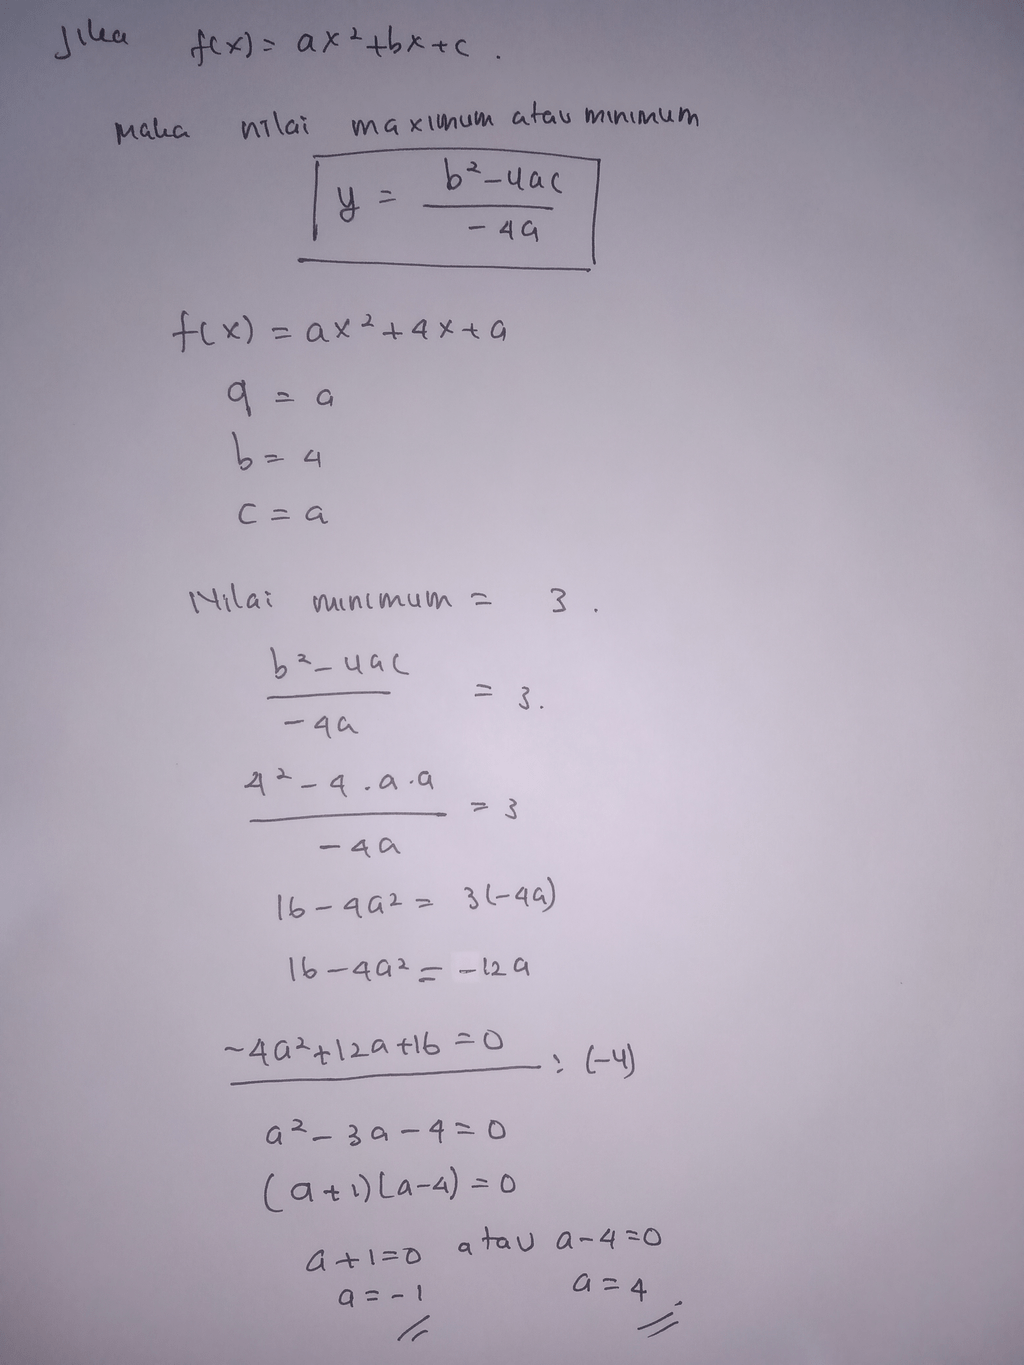 Jika f(x) = ax²+bx+c.
Maka nilai maximum atau minimum
y = b²-4ac / -4a
f(x) = ax²+4x+a
a = a
b = 4
c = a
Nilai minimum = 3.
b²-4ac / -4a = 3.
4²-4.a.a / -4a = 3
16-4a² = 3(-4a)
16-4a² = -12a
-4a²+12a+16=0 : (-4)
a²-3a-4=0
(a+1)(a-4)=0
a+1=0 atau a-4=0
a=-1 a=4